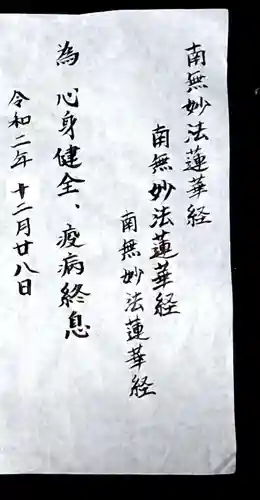 南無妙法蓮華経
南無妙法蓮華経
南無妙法蓮華経
為心身健全、疫病終息
令和二年十二月廿八日